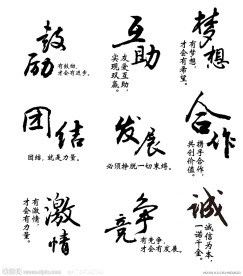 鼓励
有鼓励，
才会有进步。
互助
友爱互助，
实现双赢。
梦想
有梦想，
才会有希望。
团结
团结，就是力量。
发展
必须挣脱一切束缚。
合作
携手合作，
共创价值。
激情
有激情，
才会有力量。
竞争
有竞争，
才会有发展。
诚
诚信为本，
一诺千金。